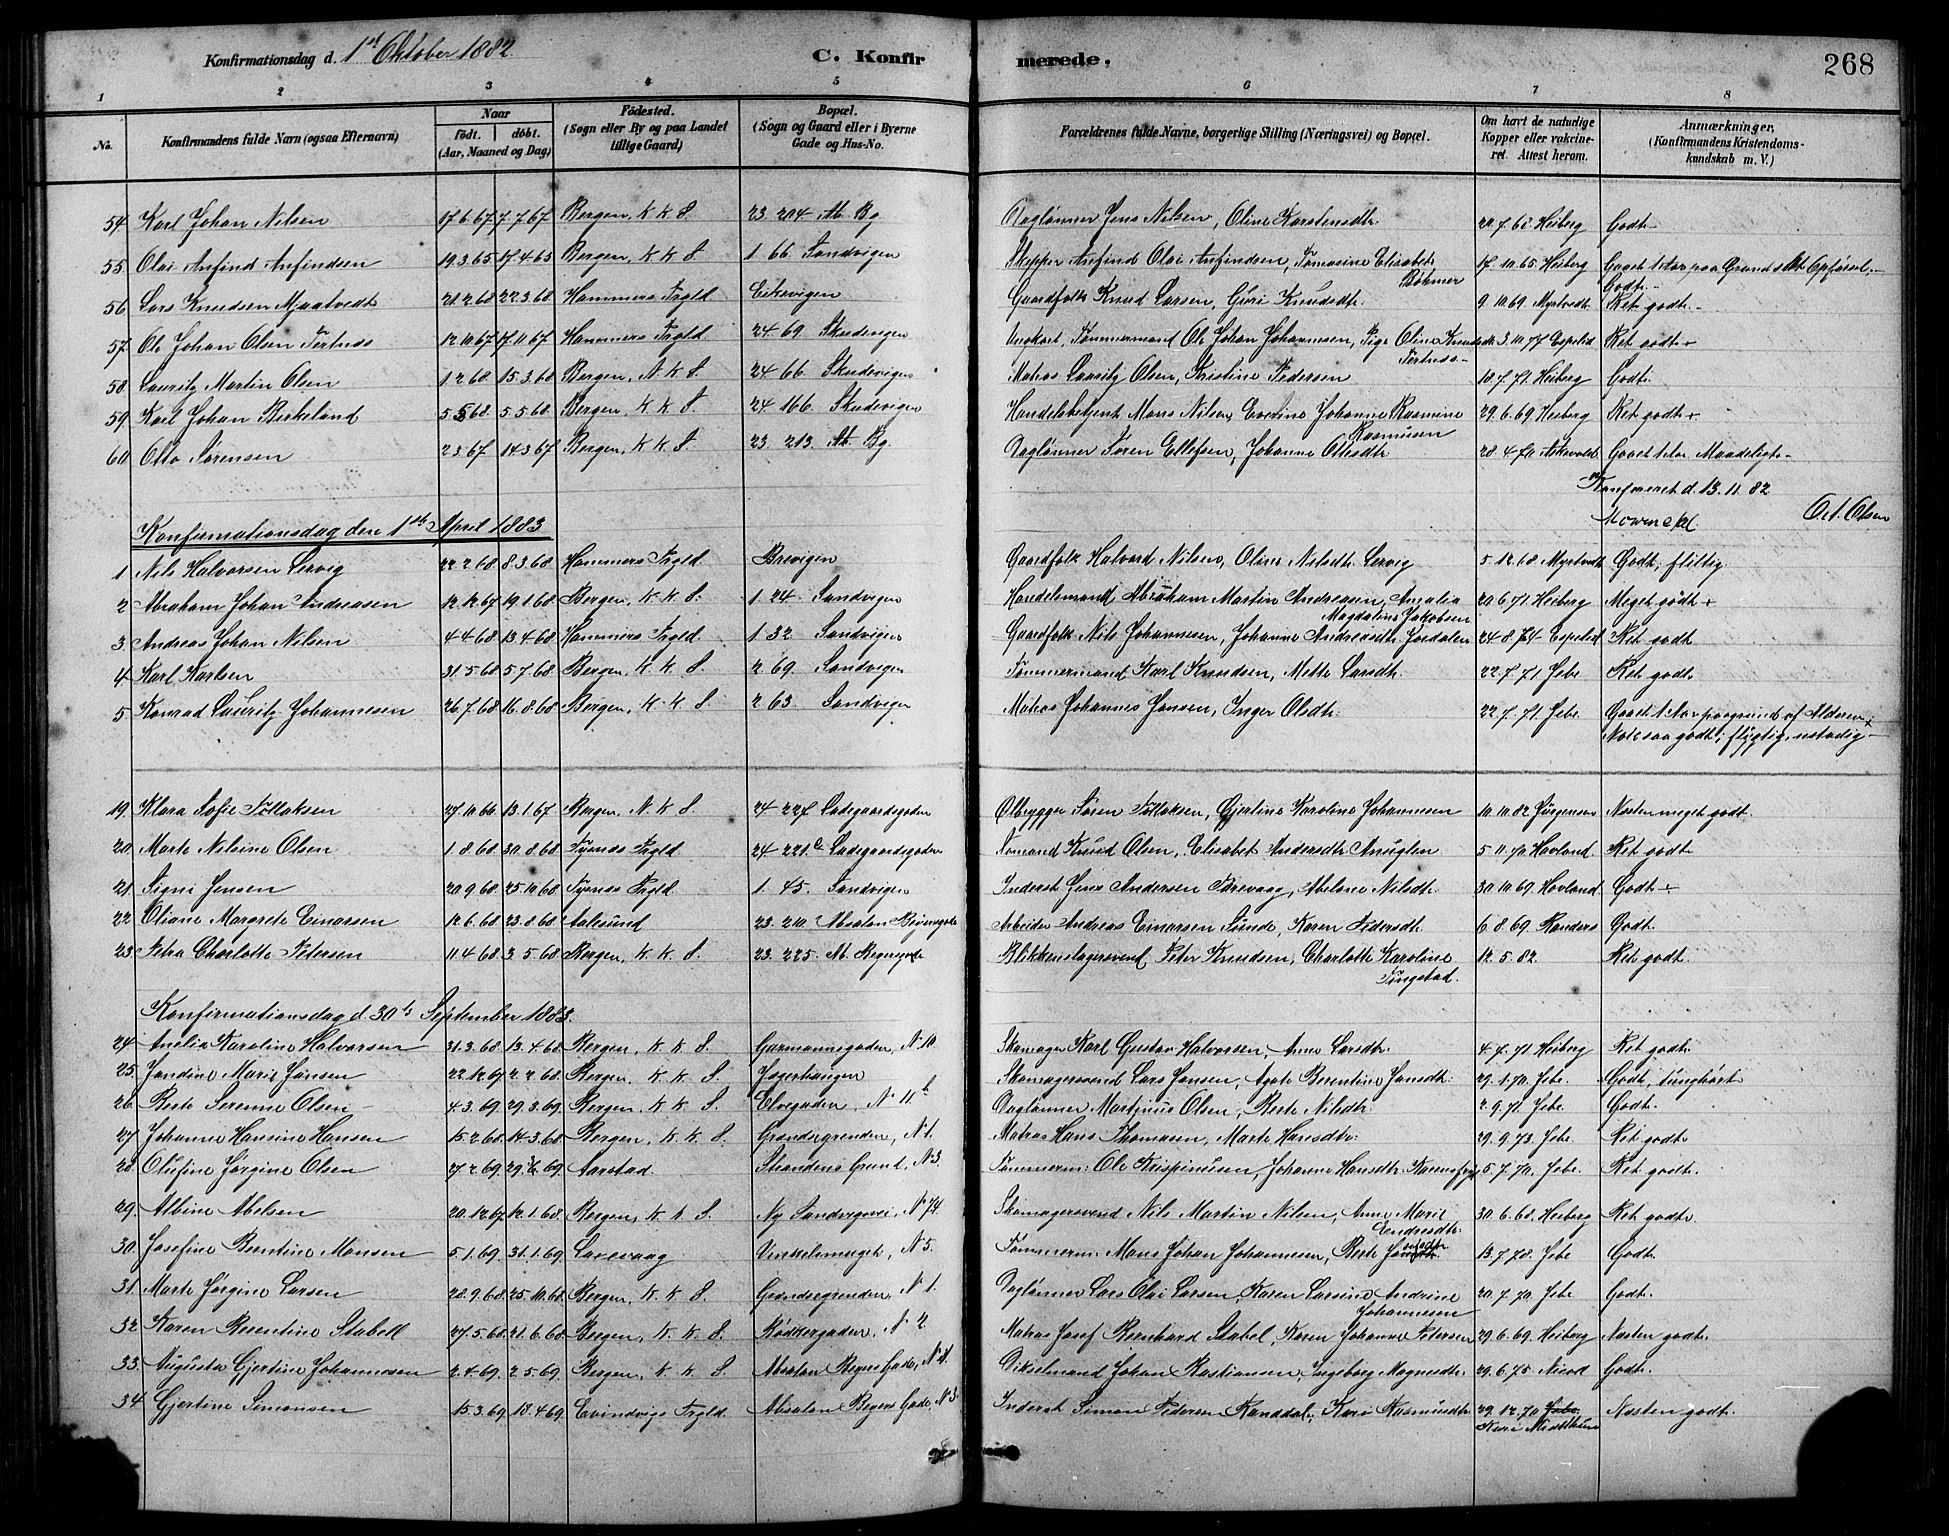 Konfirmationsdag d. 1st Oktober 1882
C. Konfirmerede.
268
1 2 3 4 5 6 7 8
No. Konfirmandens fulde Navn (ogsaa Efternavn) Naar født. døbt. (Aar, Maaned og Dag) Fødested. (Sogn eller By og paa Landet tillige Gaard) Bopæl. (Sogn og Gaard eller i Byerne Gade og Hus-No. Forældrenes fulde Navne, borgerlige Stilling (Næringsvei) og Bopæl. Om havt de naturlige Kopper eller vakcineret. Attest herom. Anmærkninger, (Konfirmandens Kristendomskundskab m. V.)
54 Karl Johan Nilsen 17 6 67 7 7 67 Bergen, K K S 23 204 St. Bg Daglønner Jens Nilsen, Oline Karstensdtr. Heiberg Godt
55 Olai Anfind Anfindsen 19 3 65 17 4 65 Bergen, K K S 1 66 Sandvigen Skipper Anfind Olai Anfindsen, Tomasine Elisabet Bøhmer 17 10 65 Heiberg Godt
56 Lars Knudsen Mjaatvedt 21 2 68 22 3 68 Hammers Prgld Eikevigen Gaardfolk Knud Larsen, Guri Knudsdtr. 9 10 69 Myrtvedt Ret godt
57 Ole Johan Olsen Tertnes 12 10 67 17 11 67 Hammers Prgld. 24 69 Skudevigen Ungkarl, Tømmermand Ole Johan Johannesen, Pige Oline Knudsdtr. Tertnes 3 10 77 Espelid Ret godt
58 Lauritz Martin Olsen 1 2 68 15 3 68 Bergen, N K S 24 66 Skudevigen Matros Lauritz Olsen, Kristine Pedersen 18 7 71 Heiberg Godt
59 Karl Johan Birkeland 5 5 68 5 5 68 Bergen, K K S 24 166 Skudevigen Handelsbetjent Mons Nilsen, Everine Johanne Rasmine Rasmusen 29 6 69 Heiberg Ret godt
60 Otto Sørensen 2 3 67 14 3 67 Bergen, K K S 23 213 St. Bg. Daglønner Søren Ellefsen, Johanne Ottesdtr 28 4 70 Askevold Gaaet 1 Aar. Maadeligt
Konfereret d. 13. 11. 82
O. A. Olsen
Konfirmationsdag den 1ste April 1883
1 Nils Halvorsen Lervig 22 2 68 8 3 68 Hammers Prgld Brevigen Gaardfolk Halvard Nilsen, Oline Nilsdtr. Lervig 5 12 68 Myrtvedt Godt, flittig
2 Abraham Johan Andreasen 12 12 67 19 1 68 Bergen, K K S 1 24 Sandvigen Handelsmand Abraham Martin Andreasen, Amalia Magdaline Jakobsen 20 6 71 Heiberg Meget godt
3 Andreas Johan Nilsen 4 4 68 13 4 68 Hammers Prgld 1 32 Sandvigen Gaardfolk Nils Johannesen, Johanne Andreasdtr. Jordalen 24 8 74 Espelid Ret godt
4 Karl Karlsen 31 5 68 5 7 68 Bergen, K K S 2 69 Sandvigen Tømmermand Karl Knudsen, Mette Larsdtr. 22 7 71 Jebe Ret godt
5 Konrad Lauritz Johannesen 26 7 68 16 8 68 Bergen, K K S 2 63 Sandvigen Matros Johannes Jansen, Inger Olsdtr. 22 7 71 Jebe Gaaet 1 Aar paagrund af Alderen. godt; flygtig, ustadig
19. Klara Sofie Tollaksen 27 10 66 13 1 67 Bergen, N K S 24 227 Ladegaardsgaden Ølbrygger Søren Tollaksen, Gjertine Karoline Johannesen 10 10 82 Jørgensen Næsten meget godt.
20. Marte Nilsine Olsen 1 8 68 30 8 68 Tysnes Prgld. 24 221 Ladegaardsgaden Sømand Knud Olsen, Elisabet Andersdtr. Anuglen 5 11 70 Hovland. Ret godt
21. Signi Jensen 20 9 68 25 10 68 Tysnes Prgld. 1. 45. Sandvigen Inderst Jens Andersen Færevaag, Abelone Nilsdtr. 30 10 69 Hovland Godt
22 Oliane Margrete Einarsen 12 6 68 23 8 68 Aalesund 23. 210 Absalon Beiersgade Arbeider Andreas Einarsen Sunde, Karen Pedersdtr. 6 8 69 Randers Godt.
23. Petra Charlotte Petersen 11 4 68 3 5 68 Bergen, K K S. 23. 225. Ab. Beiersgade Blikkenslagersvend Peter Knudsen, Charlotte Karoline Tingstad. 12. 5. 82. Ret godt.
Konfirmationsdag d. 30te September 1883.
24 Amelia Karoline Halvorsen 31. 3. 68 13. 4. 68 Bergen, K K S. Garmannsgaden, N 10 Skomager Karl Gustav Halvorsen, Anne Larsdtr. 4. 7. 71 Heiberg Ret godt.
25. Jandine Marie Jansen 22. 12. 67 2. 2. 68. Bergen, K. K. S. Jægerhaugen Skomagersvend Lars Jansen, Agate Berentine Jansdtr. 29. 1. 70. Jebe. Godt, tunghørt
26. Berte Serenne Olsen 4 3. 69 29. 3. 69. Bergen, K. K S. Elvegaden, N 11 b Daglønner Martinus Olsen, Berte Nilsdtr. 2. 9. 71. Jebe. Godt.
27 Johanne Hansine Hansen 15. 2. 68 14. 3. 68 Bergen, K. K. S. Grøndsegrenden, N 1. Matros Hans Thomasen, Marte Hansdtr. 29. 9. 73. Jebe. Ret godt
28. Olufine Jørgine Olsen 27 2 69 29. 69. Aarstad. Strandens Grund, N 3. Tømmerm. Ole Krispinusen, Johanne Hansdtr. 5. 7. 70. Jebe. Ret godt.
29. Albine Abelsen 20. 12. 67 12. 1. 68. Bergen, K K S. Ny Sandvigsvei, N 74 Skomagersvend Nils Martin Nilsen, Anne Marie Endresdtr. 30. 6. 68. Heiberg Ret godt.
30. Josefine Berntine Monsen 5. 1. 69. 31. 1. 69. Laxevaag Vinkelsmuget, N 5. Tømmerm: Mons Johan Johannesen, Berte 13. 7. 78. Jebe Godt.
31. Marte Jørgine Larsen 28. 9. 68 25. 10. 68. Bergen, K. K S. Grøndsegrenden, N 1. Daglønner Lars Olai Larsen, Karen Larsine Andrine Johannesen 20. 7. 70. Jebe Godt.
32 Karen Berentine Stabell 27. 5. 68. 21. 6. 68. Bergen, K. K S. Bødkergaden, N 2 Matros Josef Bernhard Stabel, Karen Johanne Petersen 29. 6. 69. Heiberg Næsten godt.
33. Augusta Gjertine Johannesen 2. 4. 69. 2. 5. 69. Bergen, K. K S Absalon Beyers Gade, Johan Bastiansen, Ingeborg Magnesdtr. 29. 6. 75 Godt.
34 Gjertine Simonsen 15. 3. 69 18. 4. 69 Evindvigs Prgld. Absalon Beyers Gade, N 3 Inderst Simon Pedersen Randdal, Kari Rasmusdtr. 29. 12. 70 Næsten godt.